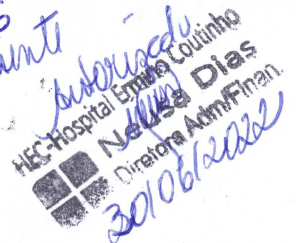 Autorizado
HEC-Hospital Ermírio Coutinho
Neusa Dias
Diretora Adm/Finan.
30/06/2022